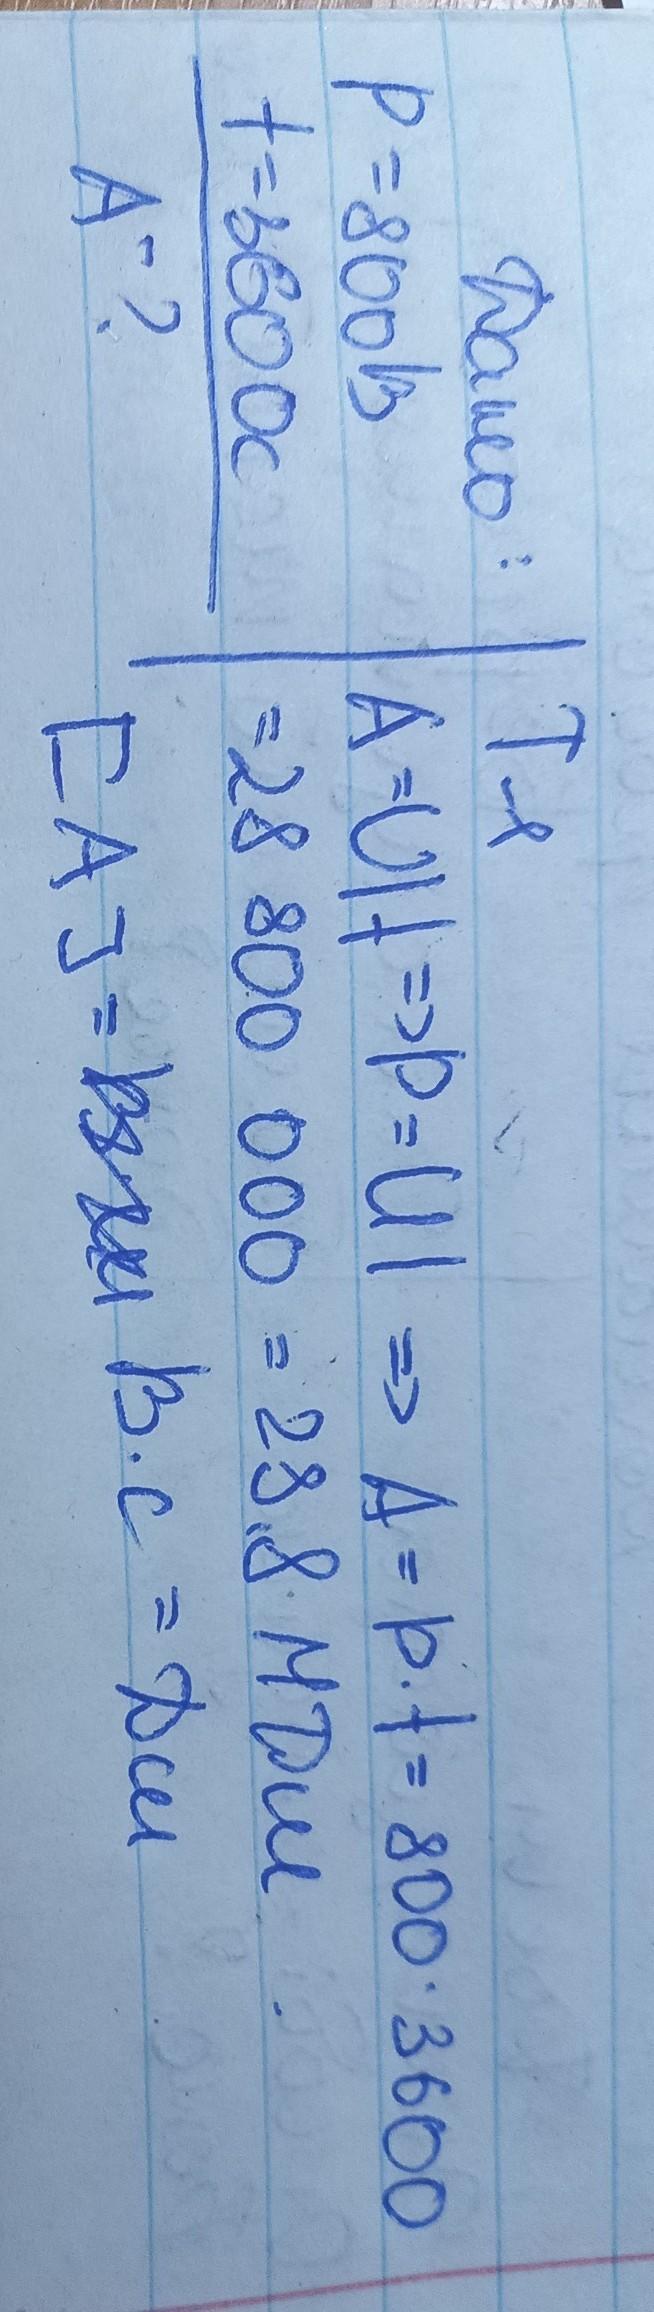 Дано:
p = 800 В
t = 3600 с
A - ?
Т-я
A = UIt => p = UI => A = p·t = 800·3600
= 28 800 000 = 28,8 МДж
[A] = В·с = Дж